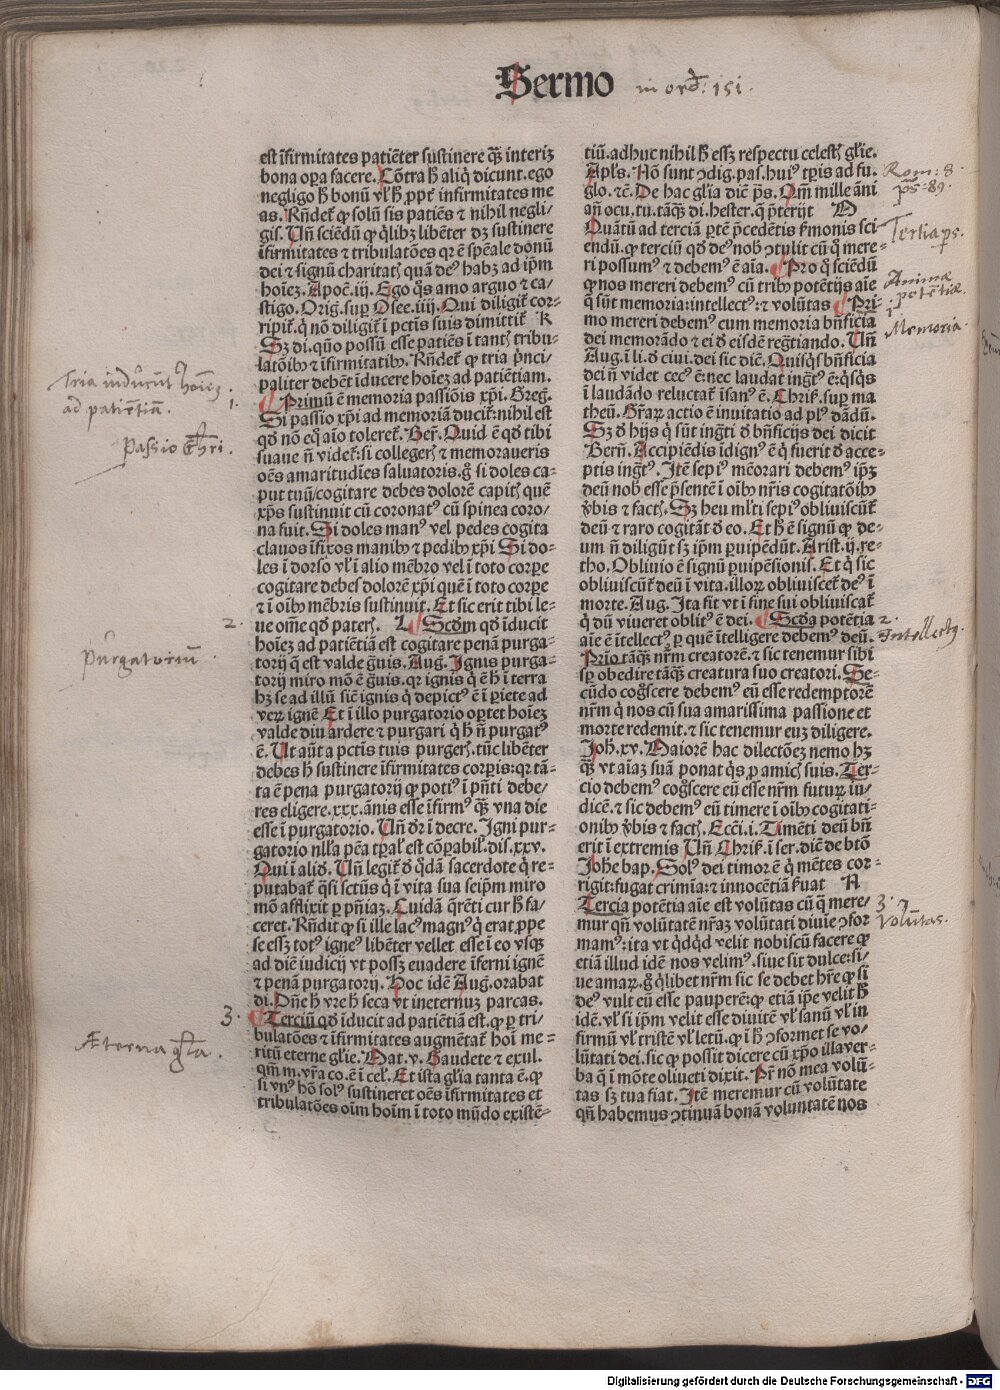 Sermo in ord: 151.
est īfirmitates patiēter sustinere q̄ꝫ interiꝰ
bona oꝑa facere. Cōtra ħ aliq̄ dicunt. ego
negligo ħ bonū vƚ ħ ꝓpt̄ infirmitates me
as. Rn̄deƭ ꝙ solū sis patiēs ⁊ nihil negli-
gis. Un̄ sciēdū ꝙ q̄libꝫ libēter dꝫ sustinere
īfirmitates ⁊ tribulatōes qꝛ ē sp̄eale donū
dei ⁊ signū charitatꝭ quā deꝰ habꝫ ad ip̄m
hoīeꝫ. Apoc̄. iij. Ego q̄s amo arguo ⁊ ca-
stigo. Oriḡ. suꝑ Osee. iiij. Qui diligiƭ cor-
ripiƭ. q̄ nō diligiƭ ī pctīs suis dimittiƭ K
Sꝫ di. quō possū esse patiēs ī tantꝭ tribu-
latōibꝰ ⁊ īfirmitatibꝰ. Rn̄deƭ ꝙ tria p̄nci-
paliter debēt īducere hoīeꝫ ad patiētiam.
Primū ē memoria passiōis xp̄i. Greḡ.
Si passio xp̄i ad memoriā duciƭ: nihil est
qd̄ nō eq̄ aīo tolereƭ. Ber̄. Quid ē qd̄ tibi
suaue n̄ videƭ: si collegerꝭ ⁊ memoraueris
oēs amaritudīes saluatoris. gͦ si doles ca-
put tuū/cogitare debes dolorē capitꝭ quē
xp̄s sustinuit cū coronatꝰ cū spinea coro/
na fuit. Si doles manꝰ vel pedes cogita
clauos īfixos manibꝰ ⁊ pedibꝰ xp̄i Si do-
les ī dorso vƚ ī alio mēbro vel ī toto corꝑe
cogitare debes dolorē xp̄i quē ī toto corꝑe
⁊ ī oībꝰ mēbris sustinuit. Et sic erit tibi le-
ue om̄e qd̄ paterꝭ. L Scd̄m qd̄ īducit
hoīez ad patiētiā est cogitare penā purga-
torij q̄ est valde ḡuis. Aug. Ignis purga-
torij miro mō ē ḡuis. qꝛ ignis q̄ ē ħ ī terra
hꝫ se ad illū sic̄ ignis q̄ depictꝰ ē ī pariete ad
verꝫ ignē Et ī illo purgatorio oꝑtet hoīez
valde diu ardere ⁊ purgari q̄ ħ n̄ purgatꝰ
ē. Ut aūt a pctīs tuis purgerꝭ. tūc libēter
debes ħ sustinere īfirmitates corꝑis: qꝛ tā-
ta ē pena purgatorij ꝙ potiꝰ ī pn̄ti debe/
res eligere. xxx. ānis esse īfirmꝰ q̄ꝫ vna die
esse ī purgatorio. Un̄ dr̄ ī decre. Igni pur-
gatorio nƚla pēa tp̄al' est cōparabiƚ. dis. xxv.
Qui ī aliđ. Un̄ legiƭ đ q̄dā sacerdote q̄ re-
putabaƭ q̄si sctūs q̄ ī vita sua seip̄m miro
mō afflixit ꝑ pn̄iaꝫ. Cuidā q̄rēti cur ħ fa-
ceret. Rn̄dit ꝙ si ille lacꝰ magnꝰ q̄ erat ꝓpe
se essꝫ totꝰ igneꝰ libēter vellet esse ī eo vsqꝫ
ad diē iudicij vt possꝫ euadere īferni ignē
⁊ penā purgatorij. Hoc idē Aug. orabat
di. Dn̄e ħ vre ħ seca vt ineternuꝫ parcas.
Terciū qd̄ īducit ad patiētiā est. ꝙ ꝑ tri/
bulatōes ⁊ īfirmitates augmētaƭ hoī me-
ritū eterne gƚie. Mat. v. Gaudete ⁊ exul.
qm̄ m. vr̄a co. ē ī ceƚ. Et ista gƚia tanta ē. ꝙ
si vnꝰ hō solꝰ sustineret oēs īfirmitates et
tribulatōes oīm hoīm ī toto mūdo existē-
tiū. adhuc nihil ħ essꝫ respectu celestꝭ gƚie.
Apƚs. Nō sunt ↄdig. pas. huiꝰ tꝑis ad fu.
glo. ⁊c̄. De hac gƚia dic̄ ps̄. Qm̄ mille āni
an̄ ocu. tu. tāq̄ꝫ di. hester. q̄ p̄terijt M
Quātū ad terciā ꝑtē p̄cedētis ẜmonis sci
endū. ꝙ terciū qd̄ deꝰ nob̄ ↄtulit cū q̄ mere-
ri possumꝰ ⁊ debemꝰ ē aīa. Pro q̄ sciēdū
ꝙ nos mereri debemꝰ cū tribꝰ potētijs aīe
q̄ sūt memoria: intellectꝰ: ⁊ volūtas Pri
mo mereri debemꝰ cum memoria bn̄ficia
dei memorādo ⁊ ei đ eisdē regr̄tiando. Un̄
Aug. ī li. đ ciui. dei sic dic̄. Quisq̄s bn̄ficia
dei n̄ videt cecꝰ ē: nec laudat ingr̄t ē: q̄sq̄s
ī laudādo reluctaƭ īsanꝰ ē. Chriẜ. suꝑ ma
theū. Gr̄aꝝ actio ē inuitatio ad plꝰ dādū.
Sꝫ đ hijs q̄ sūt ingr̄ti đ bn̄ficijs dei dicit
Bern̄. Accipiēdis īdignꝰ ē q̄ fuerit đ acce-
ptis ingr̄tꝰ. Itē sepiꝰ mēorari debemꝰ ip̄ꝫ
deū nob̄ esse p̄sentē ī oībꝰ nr̄is cogitatōibꝰ
v̄bis ⁊ factꝭ. Sꝫ heu mƚti sepiꝰ obliuiscūƭ
deū ⁊ raro cogitāt đ eo. Et ħ ē signū ꝙ de-
um n̄ diligūt sꝫ ip̄m ꝑuipēdūt. Arist. ij. re-
tho. Obliuio ē signū ꝑuipēsionis. Et q̄ sic
obliuiscūƭ deū ī vita. illoꝝ obliuisceƭ deꝰ ī
morte. Aug. Ita fit vt ī fine sui obliuiscaƭ
q̄ dū viueret oblitꝰ ē dei. Scđa potētia
aīe ē itellectꝰ ꝑ quē ītelligere debemꝰ deū.
Prīo tāq̄ꝫ nr̄m creatorē ⁊ sic tenemur sibi
sꝑ obedire tāq̄ꝫ creatura suo creatori. Se-
cūdo cogͦscere debemꝰ eū esse redemptorē
nr̄m q̄ nos cū sua amarissima passione et
morte redemit. ⁊ sic tenemur euꝫ diligere.
Joħ. xv. Maiorē hac dilectōeꝫ nemo hꝫ
q̄ꝫ vt aīaꝫ suā ponat q̄s ꝓ amicꝭ suis. Ter-
cio debemꝰ cogͦscere eū esse nr̄m futuꝝ iu/
dicē. ⁊ sic debemꝰ eū timere ī oībꝰ cogitati-
onibꝰ v̄bis ⁊ factꝭ. Ecc̄i. i. Timēti deū bn̄
erit ī extremis Un̄ Chriẜ. ī ser. dic̄ de btō
Joħe bap. Solꝰ dei timor ē q̄ mētes cor-
rigit: fugat crimīa: ⁊ innocētiā ẜuat N
Tercia potētia aīe est volūtas cū q̄ mere/
mur qn̄ volūtatē nr̄aꝫ volūtati diuīe ↄfor
mamꝰ: ita vt q̄dq̄d velit nobiscū facere ꝙ
etiā illud idē nos velimꝰ. siue sit dulce: si/
ue amaꝝ. gͦ q̄libet nr̄m sic se debet hr̄e ꝙ si
deꝰ vult eū esse pauperē: ꝙ etiā ip̄e velit ħ
idē. vƚ si ip̄m velit esse diuitē vƚ sanū vƚ in
firmū vƚ tristē vƚ letū. ꝙ ī ħ ↄformet se vo/
lūtati dei. sic ꝙ possit dicere cū xp̄o illa ver-
ba q̄ ī mōte oliueti dixit. Pr̄ nō mea volū-
tas sꝫ tua fiat. Itē meremur cū volūtate
qn̄ habemus ↄtinuā bonā voluntatē nos
Tria inducunt hoīes
ad patientiā. 1.
Passio Chri.
2.
Purgatoriū
3.
Æterna gl̄ia.
Rom: 8.
ps: 89.
Tertia ps.
Animæ
potētiæ.
1
Memoria.
2.
Intellectꝰ.
3.
Volūtas.
Digitalisierung gefördert durch die Deutsche Forschungsgemeinschaft - DFG